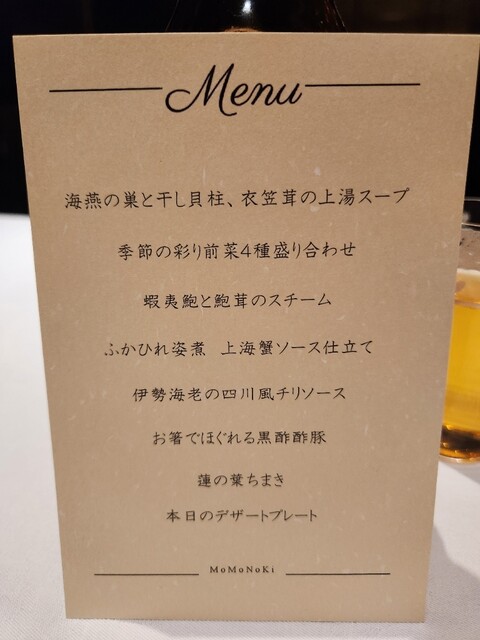 Menu
海燕の巣と干し貝柱、衣笠茸の上湯スープ
季節の彩り前菜4種盛り合わせ
蝦夷鮑と鮑茸のスチーム
ふかひれ姿煮 上海蟹ソース仕立て
伊勢海老の四川風チリソース
お箸でほぐれる黒酢酢豚
蓮の葉ちまき
本日のデザートプレート
MoMoNoKi